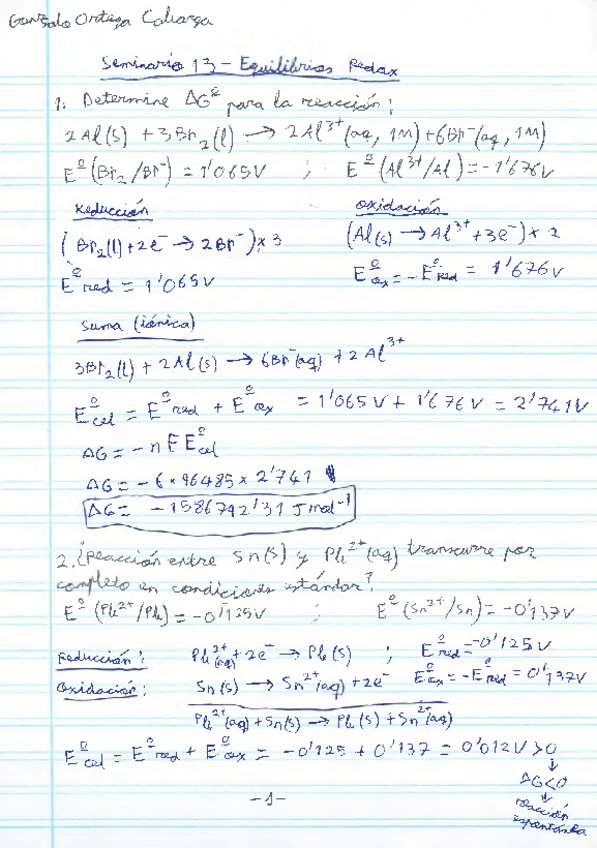 Gonzalo Ortega Cabarga
Seminario 13 - Equilibrios Redox
1. Determine ΔGº para la reacción:
2Al(s) + 3Br₂(l) → 2Al³⁺(aq, 1M) + 6Br⁻(aq, 1M)
Eº(Br₂/Br⁻) = 1'065V ; Eº(Al³⁺/Al) = -1'676V
Reducción Oxidación
(Br₂(l) + 2e⁻ → 2Br⁻) x 3 (Al(s) → Al³⁺ + 3e⁻) x 2
Eº red = 1'065V Eº ox = -Eº red = 1'676V
Suma (iónica)
3Br₂(l) + 2Al(s) → 6Br⁻(aq) + 2Al³⁺
Eº cel = Eº red + Eº ox = 1'065V + 1'676V = 2'741V
ΔG = -nFEº cel
ΔG = -6 x 96485 x 2'741
ΔG = -1586792'31 J mol⁻¹
2. ¿Reacción entre Sn(s) y Pb²⁺(aq) transcurre por
completo en condiciones estándar?
Eº(Pb²⁺/Pb) = -0'125V ; Eº(Sn²⁺/Sn) = -0'137V
Reducción: Pb²⁺(aq) + 2e⁻ → Pb(s) ; Eº red = -0'125V
Oxidación: Sn(s) → Sn²⁺(aq) + 2e⁻ Eº ox = -Eº red = 0'137V
Pb²⁺(aq) + Sn(s) → Pb(s) + Sn²⁺(aq)
Eº cel = Eº red + Eº ox = -0'125 + 0'137 = 0'012V > 0
↓
ΔG<0
↓
reacción
espontánea
-1-